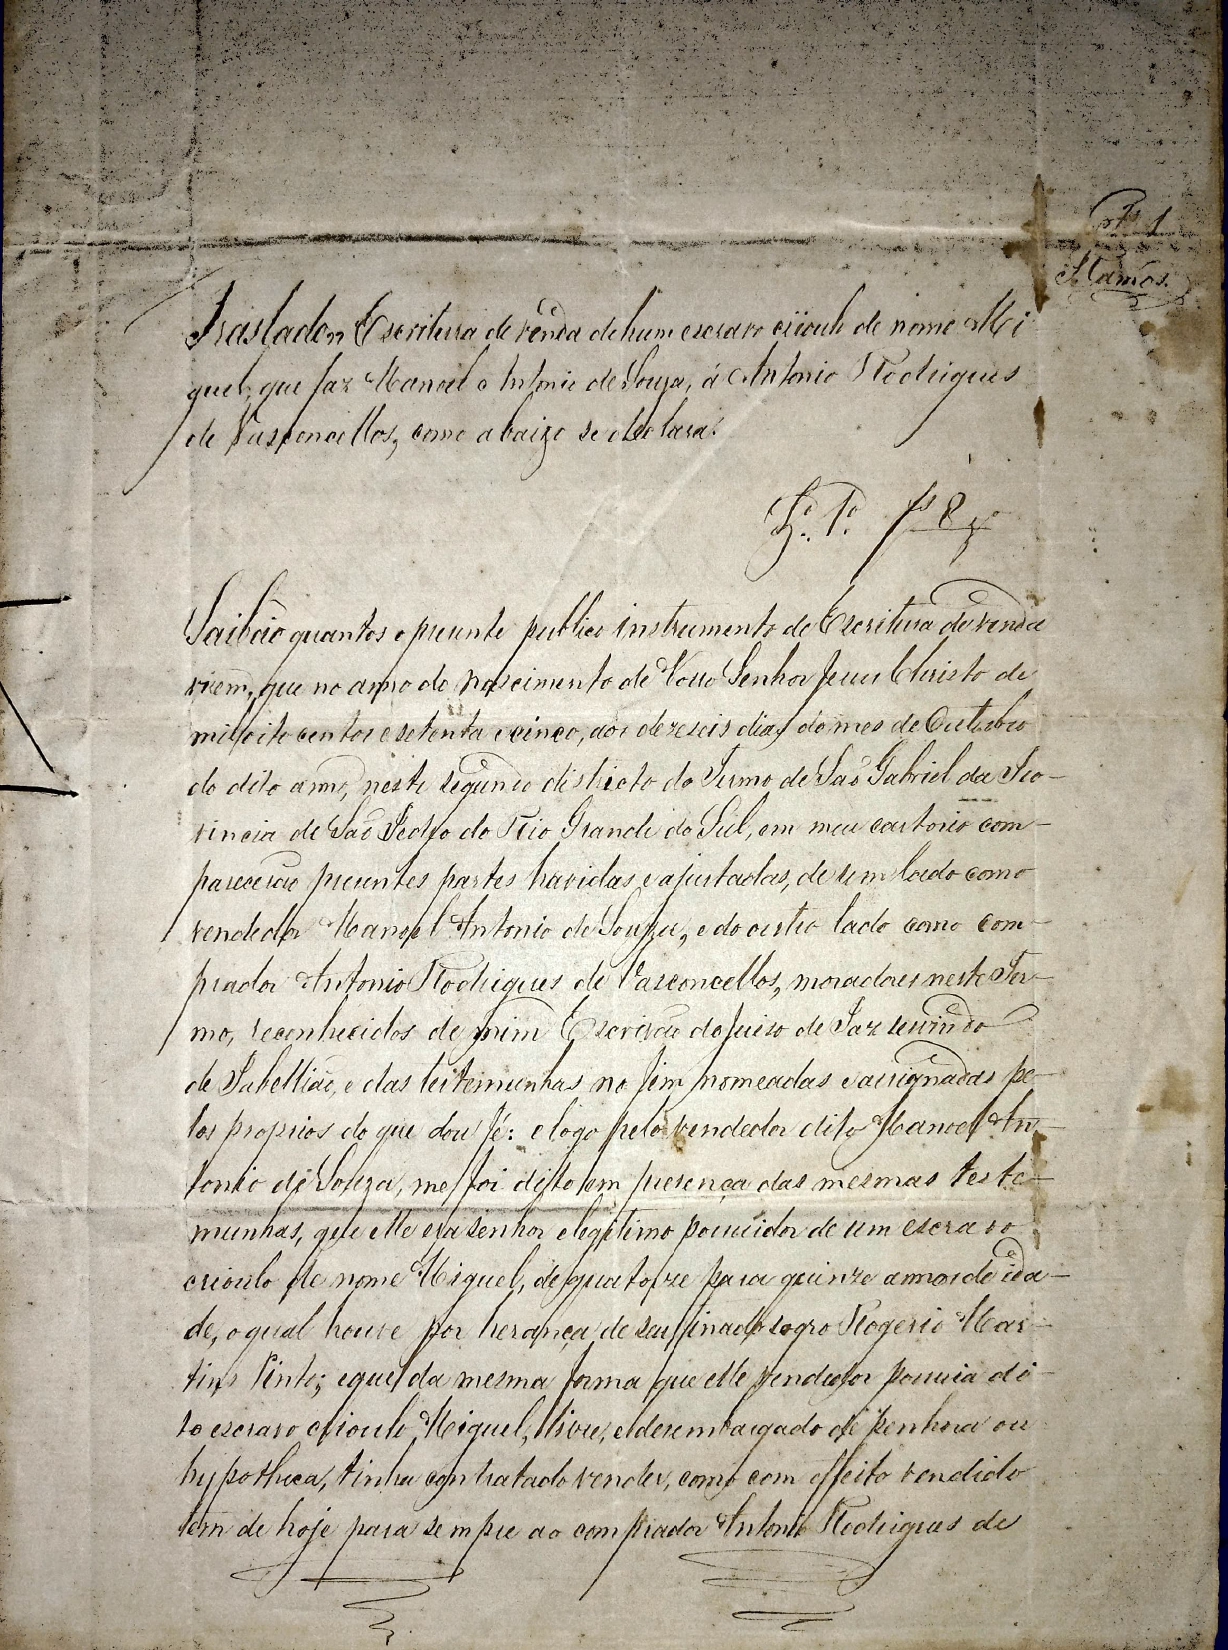 fs 1
Ramos.
Traslado Escritura de venda de hum escravo crioulo de nome Mi
guel, que faz Manoel Antonio de Souza, á Antonio Rodrigues
de Vasconcellos, como abaixo se declara:
L.º 1.º fs 8 vº
Saibão quantos o presente publico instrumento de Escritura de venda
virem, que no anno do nascimento de Nosso Senhor Jesus Christo de
mil oito centos e setenta e cinco, aos dezeseis dias do mes de Outubro
do dito anno, neste segundo districto do Termo de São Gabriel da Pro-
vincia de São Pedro do Rio Grande do Sul, em meu cartorio com-
parecerão presentes partes havidas e ajustadas, de um lado como
vendedor Manoel Antonio de Souza, e do outro lado como com-
prador Antonio Rodrigues de Vasconcellos, moradores neste Ter-
mo, reconhecidos de mim Escrivão do Juizo de Paz servindo
de Tabellião, e das testemunhas no fim nomeadas e assignadas pe-
los proprios do que dou fé: e logo pelo vendedor dito Manoel An-
tonio de Souza, me foi dito em presença das mesmas teste-
munhas, que elle era senhor e legitimo possuidor de um escravo
crioulo de nome Miguel, de quatorze para quinze annos de ida-
de, o qual houve por herança de seu finado sogro Rogerio Mar-
tins Pinto; e que da mesma forma que elle vendedor possuia di-
to escravo crioulo Miguel, livre, e desembargado de penhora ou
hypotheca, tinha contratado vender, como com effeito vendido
tem de hoje para sempre ao comprador Antonio Rodrigues de